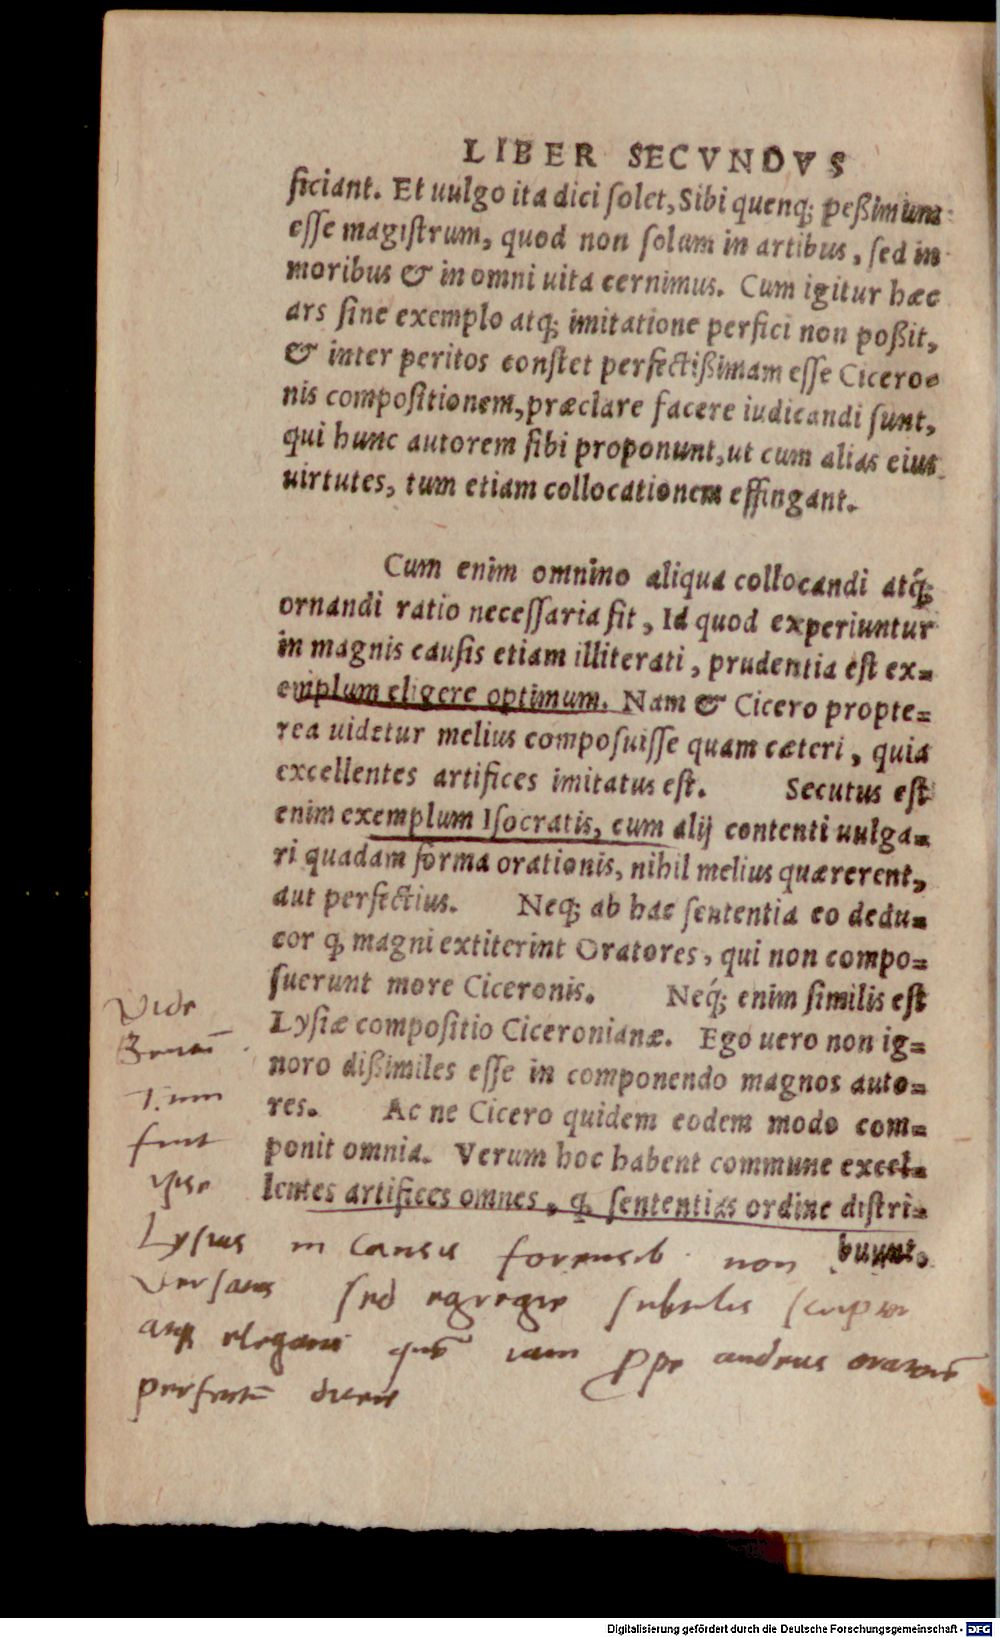 LIBER SECVNDVS
ficiant. Et uulgo ita dici solet, Sibi quenq; peßimum
esse magistrum, quod non solum in artibus, sed in
moribus & in omni uita cernimus. Cum igitur hæc
ars sine exemplo atq; imitatione perfici non poßit,
& inter peritos constet perfectißimam esse Cicero-
nis compositionem, præclare facere iudicandi sunt,
qui hunc autorem sibi proponunt, ut cum alias eius
uirtutes, tum etiam collocationem effingant.
Cum enim omnino aliqua collocandi atq́;
ornandi ratio necessaria sit, Id quod experiuntur
in magnis causis etiam illiterati, prudentia est ex=
emplum eligere optimum. Nam & Cicero propte=
rea uidetur melius composuisse quam cæteri, quia
excellentes artifices imitatus est. Secutus est
enim exemplum Isocratis, cum alij contenti uulga=
ri quadam forma orationis, nihil melius quærerent,
aut perfectius. Neq; ab hac sententia eo dedu=
cor q̃ magni extiterint Oratores, qui non compo=
suerunt more Ciceronis. Neq́; enim similis est
Lysiæ compositio Ciceronianæ. Ego uero non ig=
noro dißimiles esse in componendo magnos auto=
res. Ac ne Cicero quidem eodem modo com=
ponit omnia. Verum hoc habent commune excel=
lentes artifices omnes, q̃ sententias ordine distri=
buunt.
Vide
Tum
fuit
ipse
Lysias in causis forensib. non
versatus sed egregie subtilis scriptor
atq; elegans quē iam ꝓpe audeas oratorē
perfectū dicere